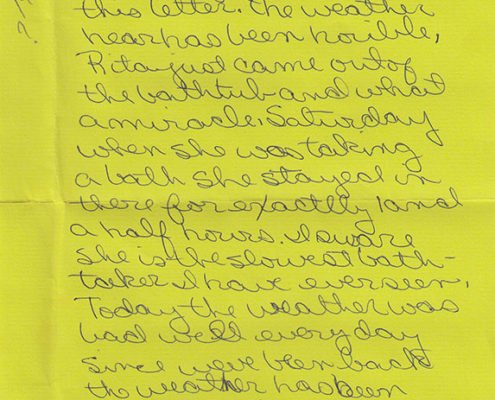 this letter. The weather
hear has been horible,
Rita just came out of
the bathtub and what
a miracle. Saturday
when she was taking
a bath she stayed in
there for exactlly 1 and
a half hours. I sware
she is the slowest bath-
taker I have ever seen.
Today the weather was
bad well everyday
since weve been back
the weather has been